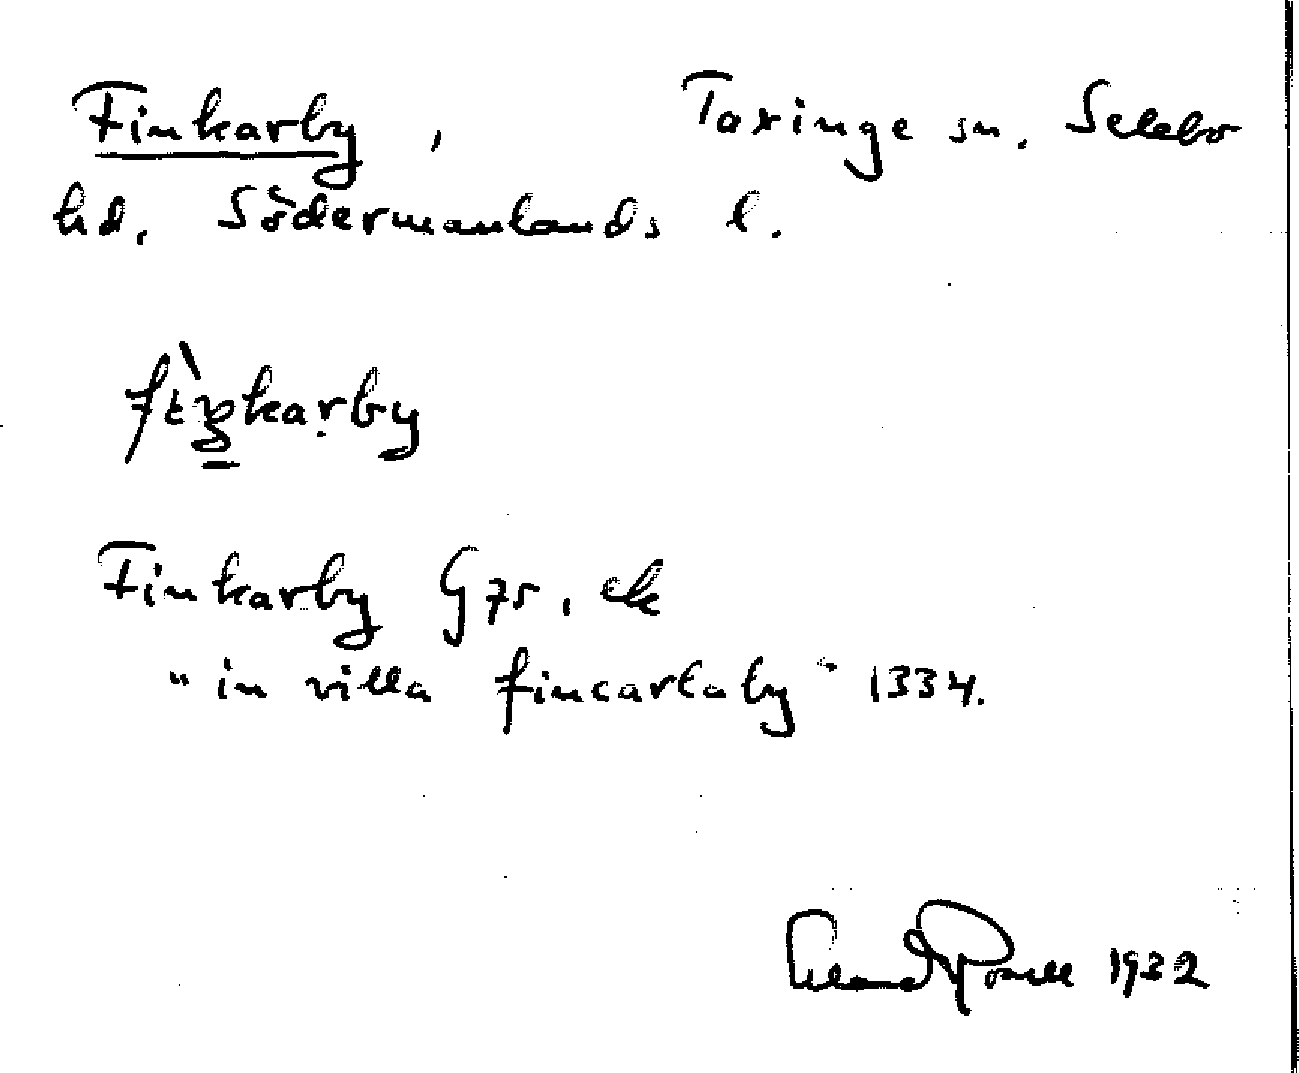 Finkarby, Taxinge sn. Selebo
hd. Södermanlands l.
Finkarby G 75, ek
"in villa fincarlaby" 1334.
1932